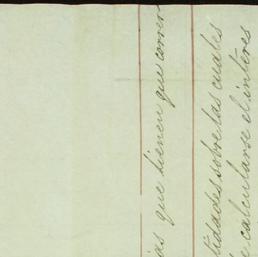 ias que tienen que correr
tidades sobre las cuales
e calcularse el interes